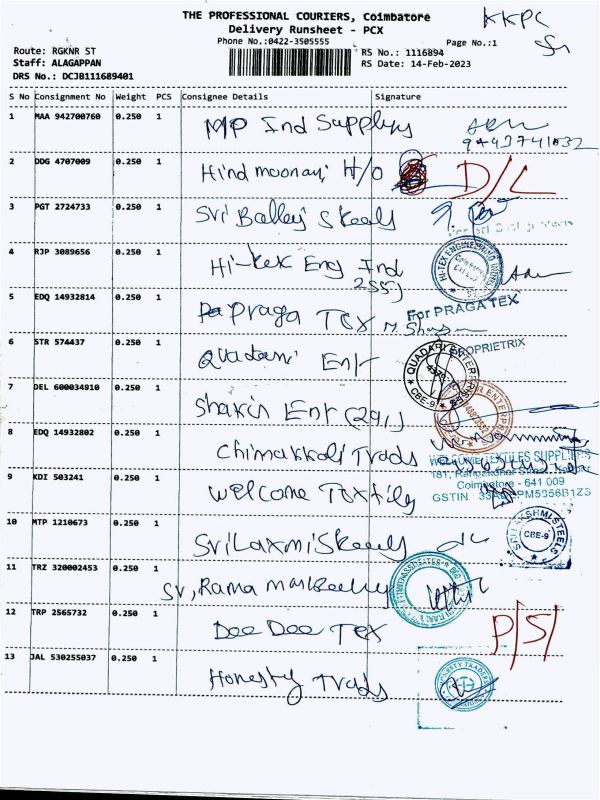 THE PROFESSIONAL COURIERS, Coimbatore
Delivery Runsheet - PCX
Phone No.:0422-3505555
Page No.:1
KKPC
Route: RGKNR ST
Staff: ALAGAPPAN
DRS No.: DCJB111689401
RS No.: 1116894
RS Date: 14-Feb-2023
S No Consignment No Weight PCS Consignee Details Signature
1 MAA 942700760 0.250 1 MP Ind Suppliers
2 DDG 4707009 0.250 1 Hind moonani H/O D/L
3 PGT 2724733 0.250 1 Sri Balleji Steels
4 RJP 3089656 0.250 1 Hi-tex Eng Ind
HI-TEX ENGINEERING
5 EDQ 14932814 0.250 1 Praga Tex
For PRAGA TEX
PROPRIETRIX
6 STR 574437 0.250 1 Quadari Entr
QUADARI ENTER
CBE-9
7 DEL 600034910 0.250 1 Shakir Entr (291)
ENTERPRISES
8 EDQ 14932802 0.250 1 Chimakkoli Trads
WELCOME TEXTILES SUPPLIERS
Coimbatore - 641 009
GSTIN
9 KDI 503241 0.250 1 Welcome Textiles
10 MTP 1210673 0.250 1 Sri Laxmi Steels
SRI LAKSHMI STEELS
CBE-9
11 TRZ 320002453 0.250 1 Sri Rama Marketing
12 TRP 2565732 0.250 1 Dee Dee Tex P/S
13 JAL 530255037 0.250 1 Honesty Trads
HONESTY TRADERS